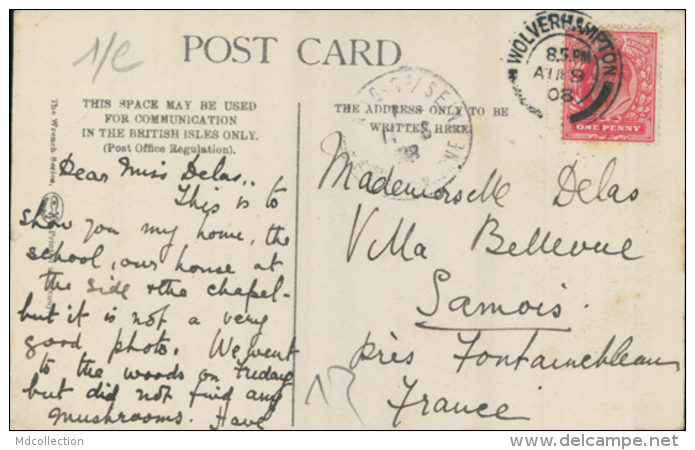 1/c
POST CARD
WOLVERHAMPTON
8.5.PM
9
08
ONE PENNY
THIS SPACE MAY BE USED
FOR COMMUNICATION
IN THE BRITISH ISLES ONLY.
(Post Office Regulation).
THE ADDRESS ONLY TO BE
WRITTEN HERE
The Wrench Series.
Dear Miss Delas..
This is to
show you my home, the
school, our house at
the side & the chapel-
but it is not a very
good photo. We went
to the woods on Friday
but did not find any
mushrooms. Have
Mademoiselle Delas
Villa Bellevue
Samois.
près Fontainebleau
France
Mdcollection
delcampe.net